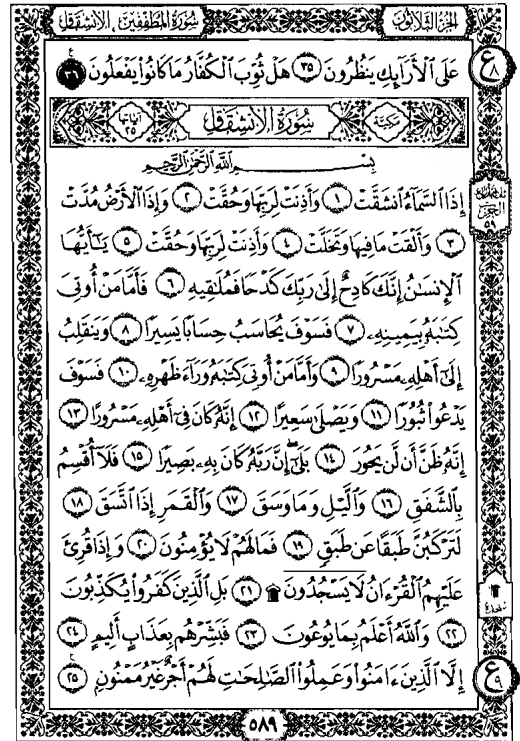 الجزء الثلاثون
سورة المطففين ، الانشقاق
عَلَى ٱلْأَرَآئِكِ يَنظُرُونَ ٣٥ هَلْ ثُوِّبَ ٱلْكُفَّارُ مَا كَانُوا۟ يَفْعَلُونَ ٣٦
ع ٨
مكية
سُورَةُ ٱلْانشِقَاقِ
آياتها ٢٥
بِسْمِ ٱللَّهِ ٱلرَّحْمَٰنِ ٱلرَّحِيمِ
إِذَا ٱلسَّمَآءُ ٱنشَقَّتْ ١ وَأَذِنَتْ لِرَبِّهَا وَحُقَّتْ ٢ وَإِذَا ٱلْأَرْضُ مُدَّتْ
٣ وَأَلْقَتْ مَا فِيهَا وَتَخَلَّتْ ٤ وَأَذِنَتْ لِرَبِّهَا وَحُقَّتْ ٥ يَٰٓأَيُّهَا
ٱلْإِنسَٰنُ إِنَّكَ كَادِحٌ إِلَىٰ رَبِّكَ كَدْحًا فَمُلَٰقِيهِ ٦ فَأَمَّا مَنْ أُوتِىَ
كِتَٰبَهُۥ بِيَمِينِهِۦ ٧ فَسَوْفَ يُحَاسَبُ حِسَابًا يَسِيرًا ٨ وَيَنقَلِبُ
إِلَىٰٓ أَهْلِهِۦ مَسْرُورًا ٩ وَأَمَّا مَنْ أُوتِىَ كِتَٰبَهُۥ وَرَآءَ ظَهْرِهِۦ ١٠ فَسَوْفَ
يَدْعُوا۟ ثُبُورًا ١١ وَيَصْلَىٰ سَعِيرًا ١٢ إِنَّهُۥ كَانَ فِىٓ أَهْلِهِۦ مَسْرُورًا ١٣
إِنَّهُۥ ظَنَّ أَن لَّن يَحُورَ ١٤ بَلَىٰٓ إِنَّ رَبَّهُۥ كَانَ بِهِۦ بَصِيرًا ١٥ فَلَآ أُقْسِمُ
بِٱلشَّفَقِ ١٦ وَٱلَّيْلِ وَمَا وَسَقَ ١٧ وَٱلْقَمَرِ إِذَا ٱتَّسَقَ ١٨
لَتَرْكَبُنَّ طَبَقًا عَن طَبَقٍ ١٩ فَمَا لَهُمْ لَا يُؤْمِنُونَ ٢٠ وَإِذَا قُرِئَ
عَلَيْهِمُ ٱلْقُرْءَانُ لَا يَسْجُدُونَ ۩ ٢١ بَلِ ٱلَّذِينَ كَفَرُوا۟ يُكَذِّبُونَ
سجدة
٢٢ وَٱللَّهُ أَعْلَمُ بِمَا يُوعُونَ ٢٣ فَبَشِّرْهُم بِعَذَابٍ أَلِيمٍ ٢٤
إِلَّا ٱلَّذِينَ ءَامَنُوا۟ وَعَمِلُوا۟ ٱلصَّٰلِحَٰتِ لَهُمْ أَجْرٌ غَيْرُ مَمْنُونٍ ٢٥
ع ٩
٥٨٩